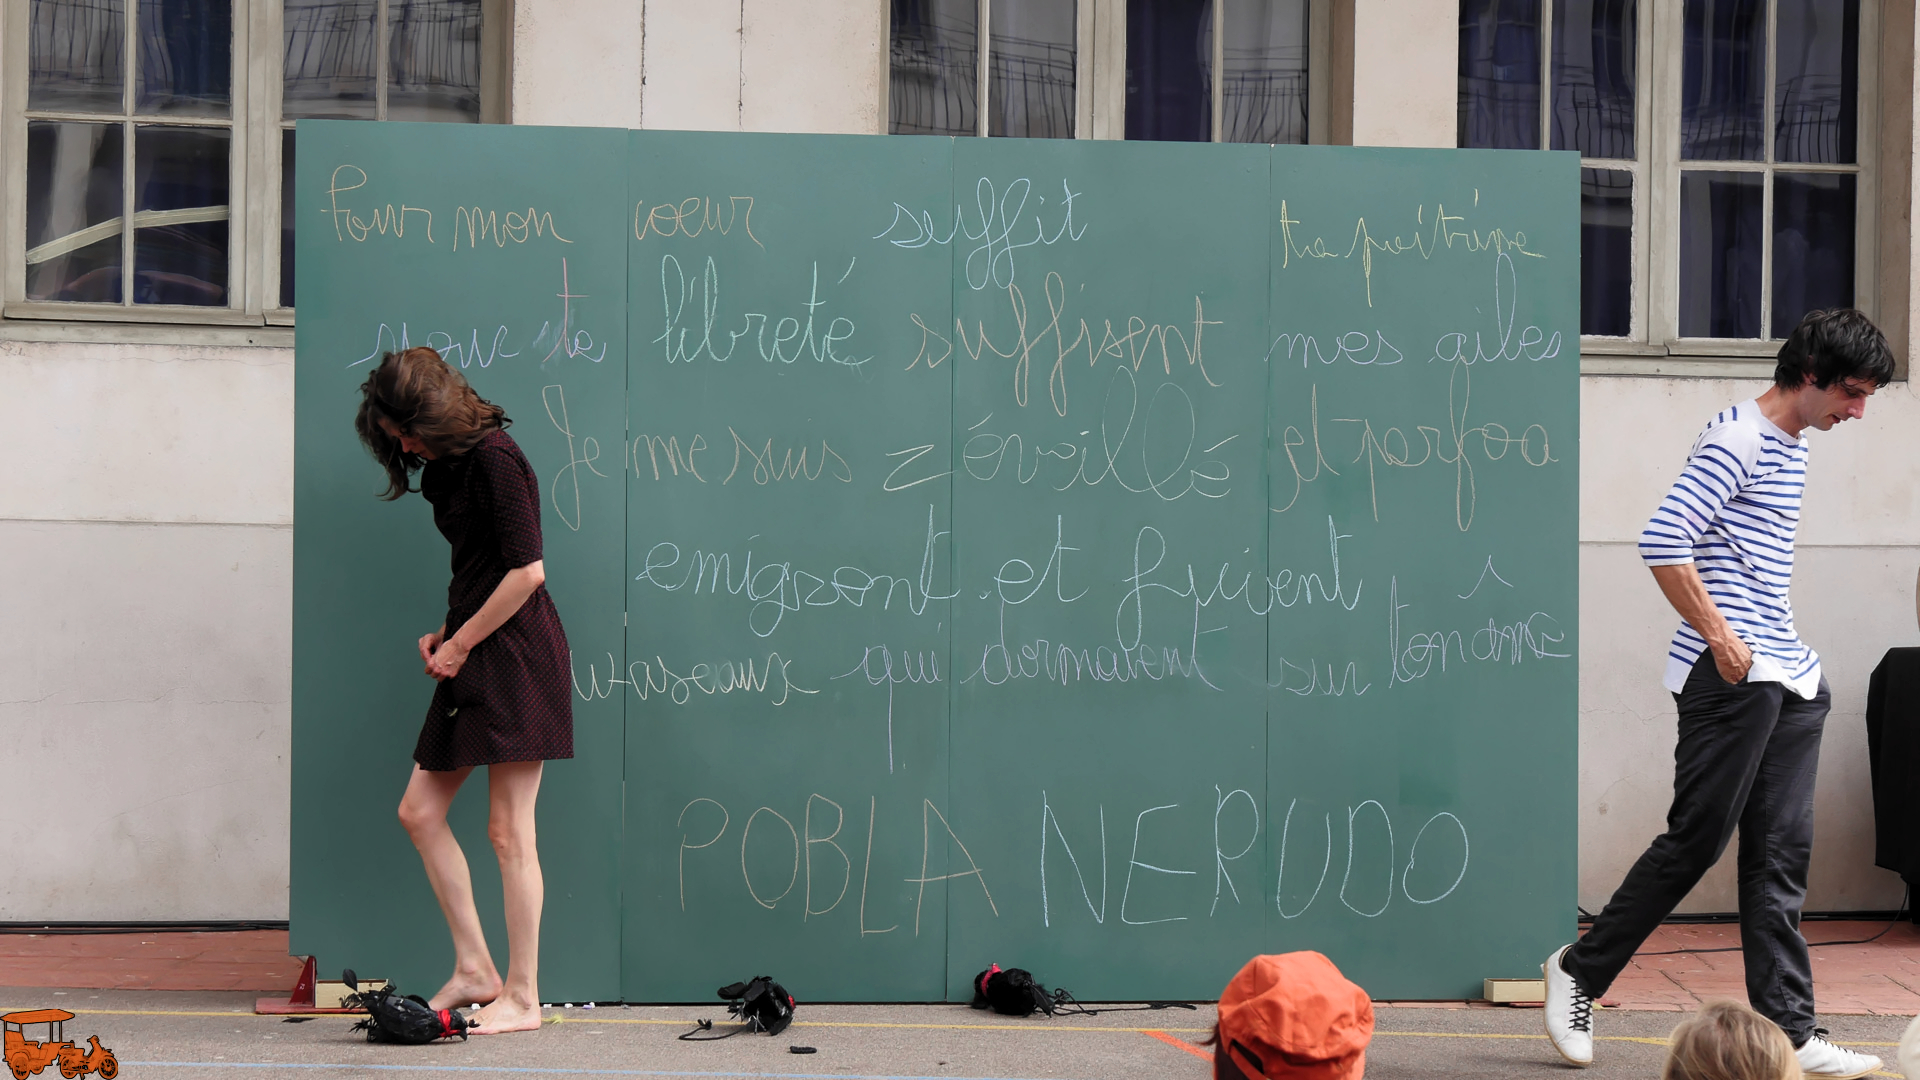 Pour mon coeur suffit ta poitrine
pour ta libreté suffisent mes ailes
Je me suis réveillé et parfoa
emigront et fuivent
oiaseaux qui dormaient sur ton âme
POBLA NERUDO